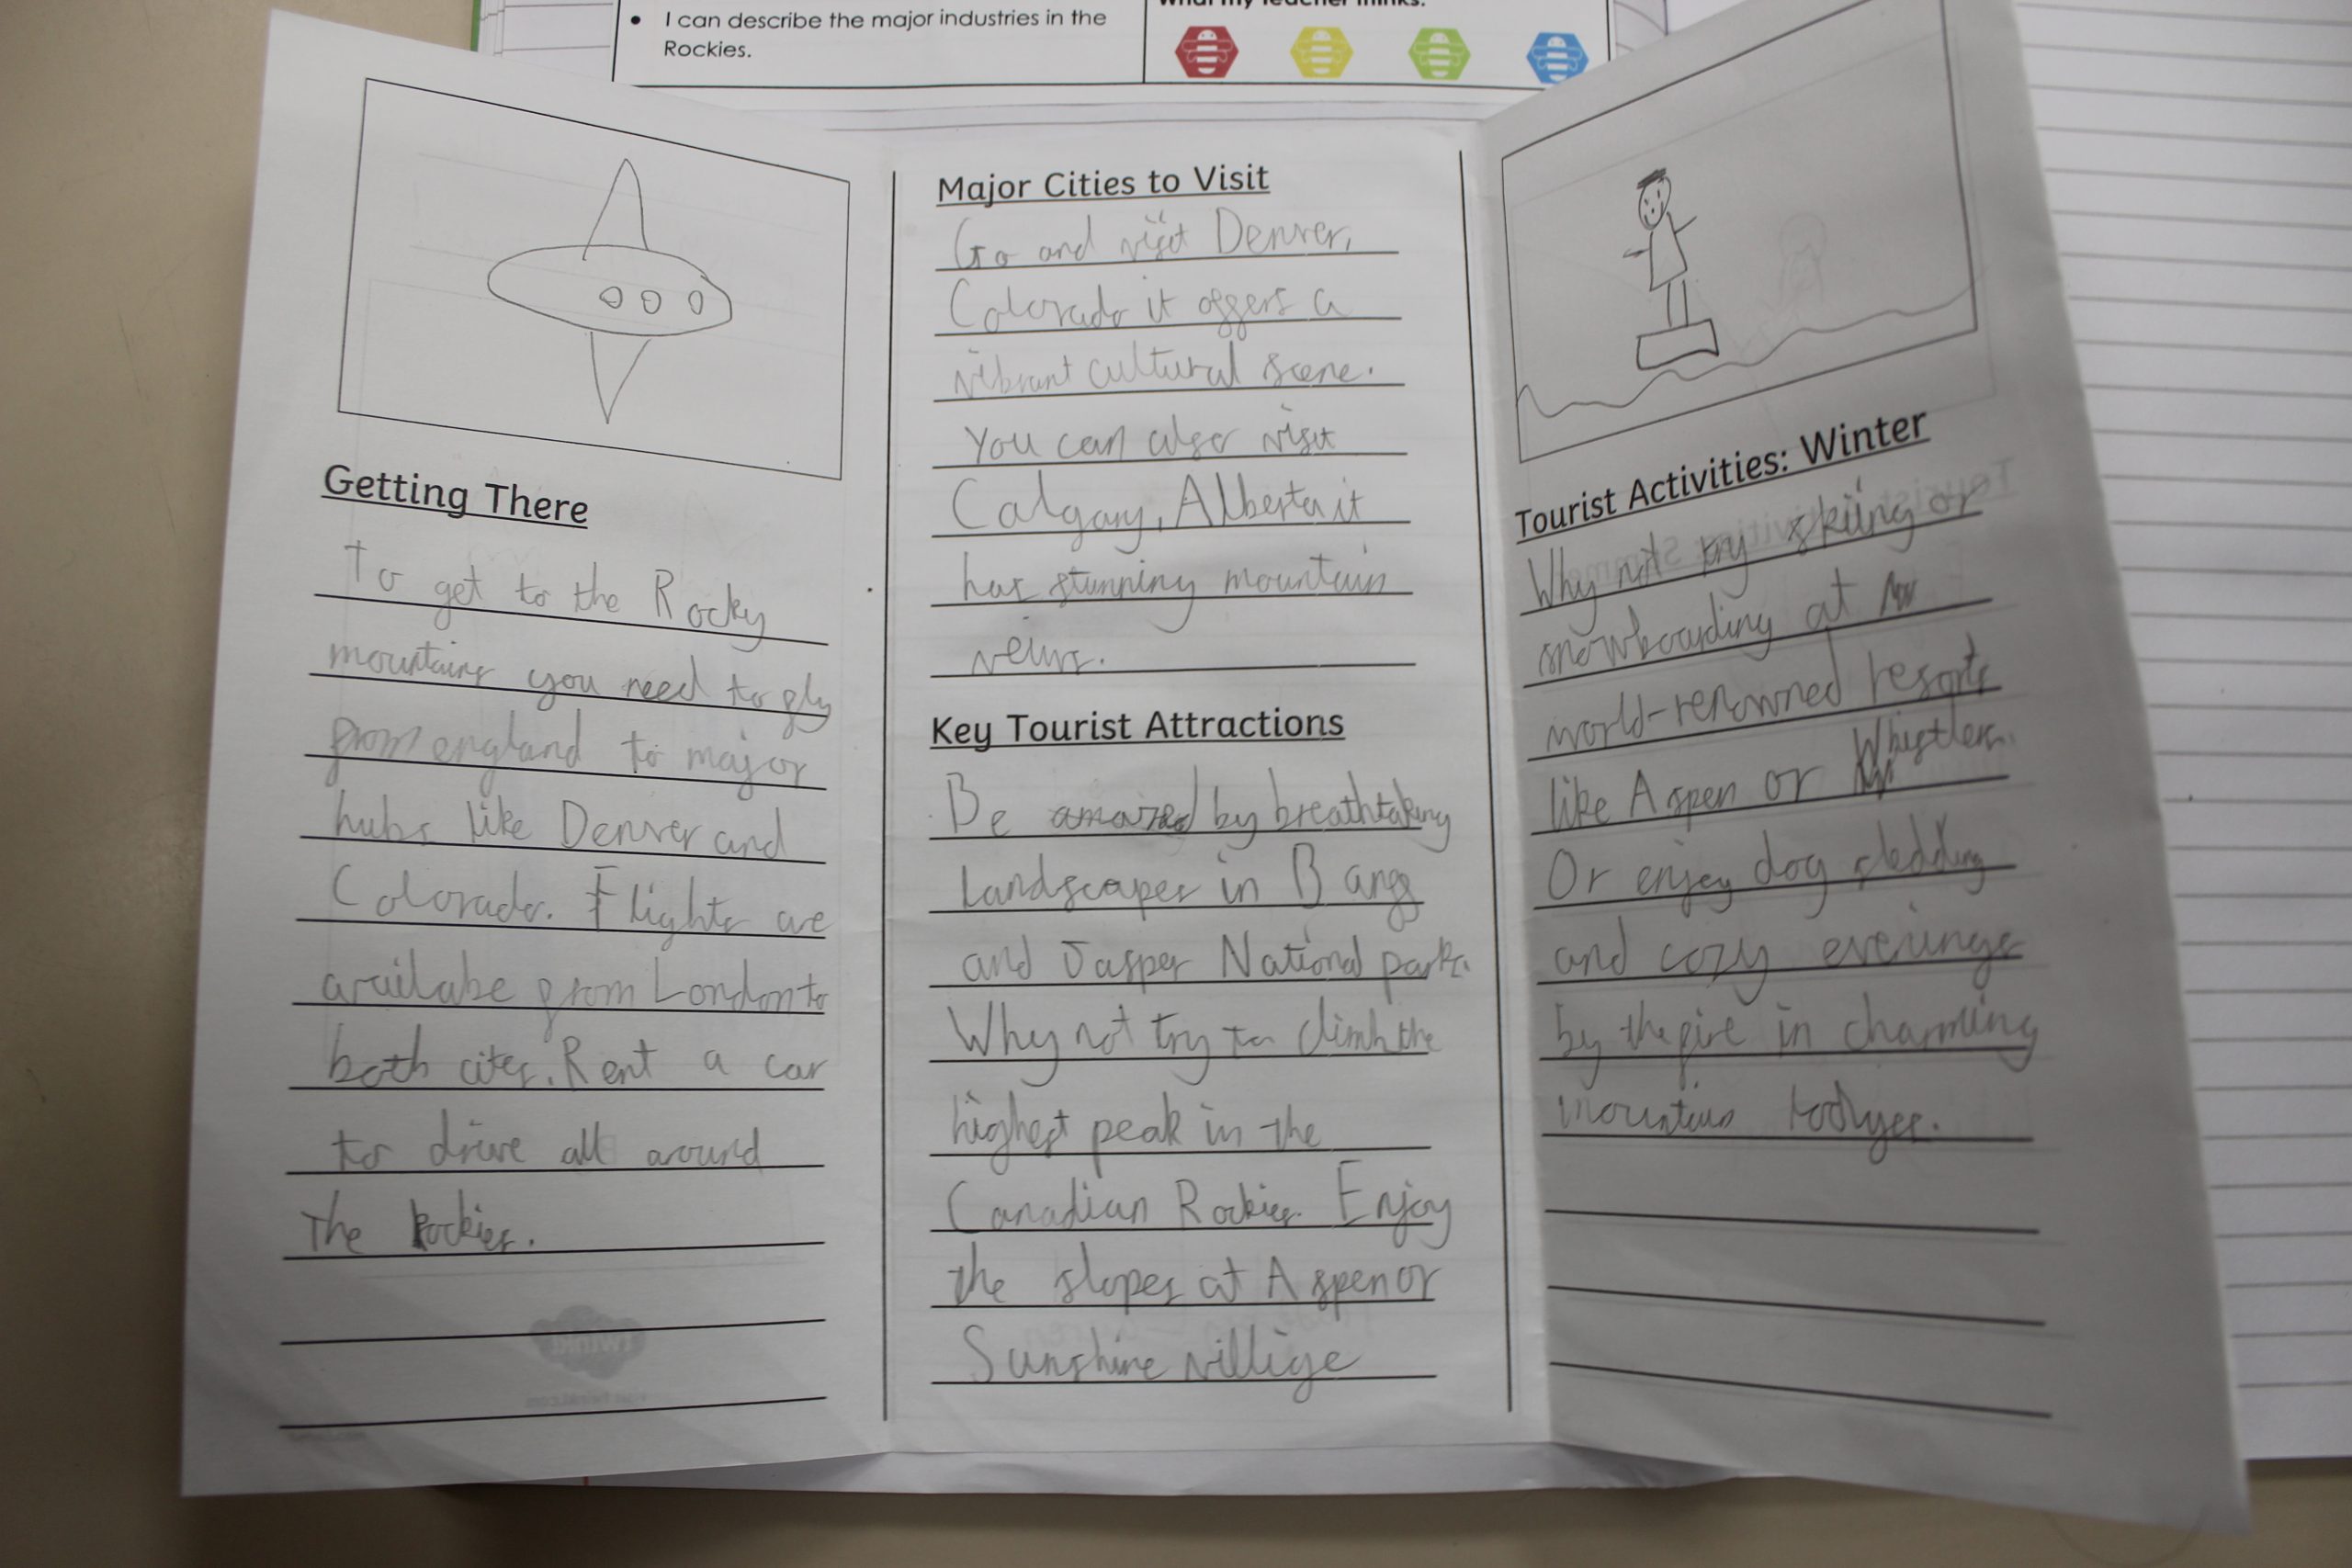 I can describe the major industries in the
Rockies.
Getting There
To get to the Rocky
mountains you need to fly
from england to major
hubs like Denver and
Colorado. Flights are
availabe from London to
both cites. Rent a car
to drive all around
The Rockies.
Major Cities to Visit
Go and visit Denver,
Colorado it offers a
vibrant cultural scene.
You can also visit
Calgary, Alberta it
has stunning mountain
veiws.
Key Tourist Attractions
Be amazed by breathtaking
Landscapes in Banff
and Jasper National parks.
Why not try to climb the
highest peak in the
Canadian Rockies. Enjoy
the slopes at Aspen or
Sunshine villige
Tourist Activities: Winter
Why not try skiing or
snowboarding at
world-renowned resorts
like Aspen or Whistler.
Or enjoy dog sledding
and cozy evenings
by the fire in charming
mountain lodges.